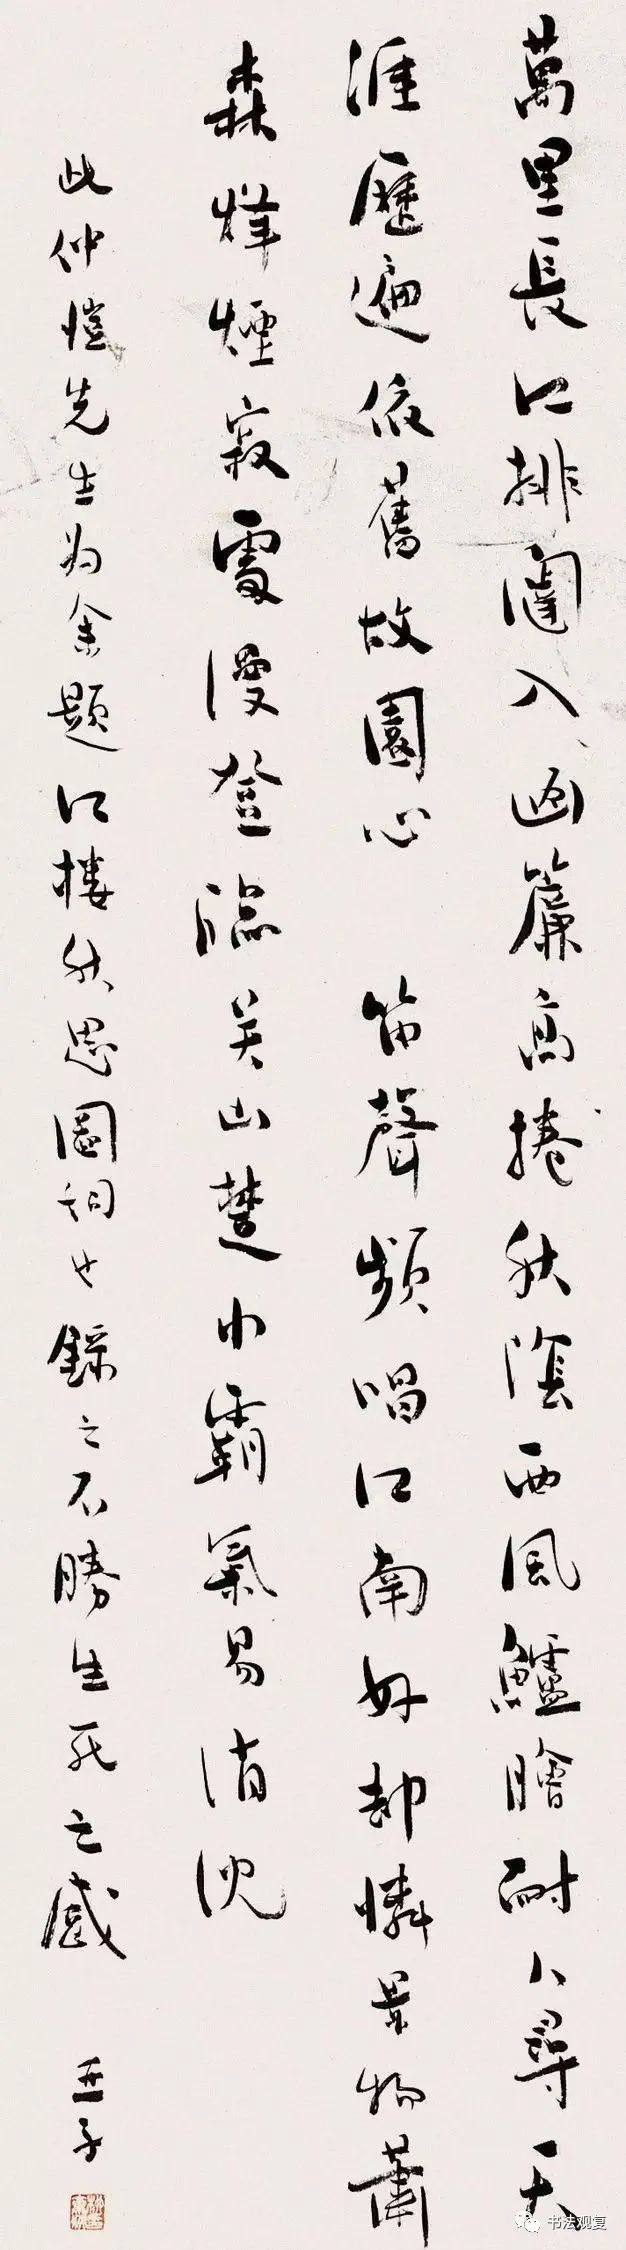 萬里長江排闥入幽簾高捲秋陰西風鱸膾耐人尋天
涯歷遍依舊故園心　笛聲頻唱江南好却憐景物蕭
森烽煙寂處漫登臨關山楚水霸氣易消沈
此仲愷先生為余題江樓秋思圖詞也錄之不勝生死之感
亞子
书法观复